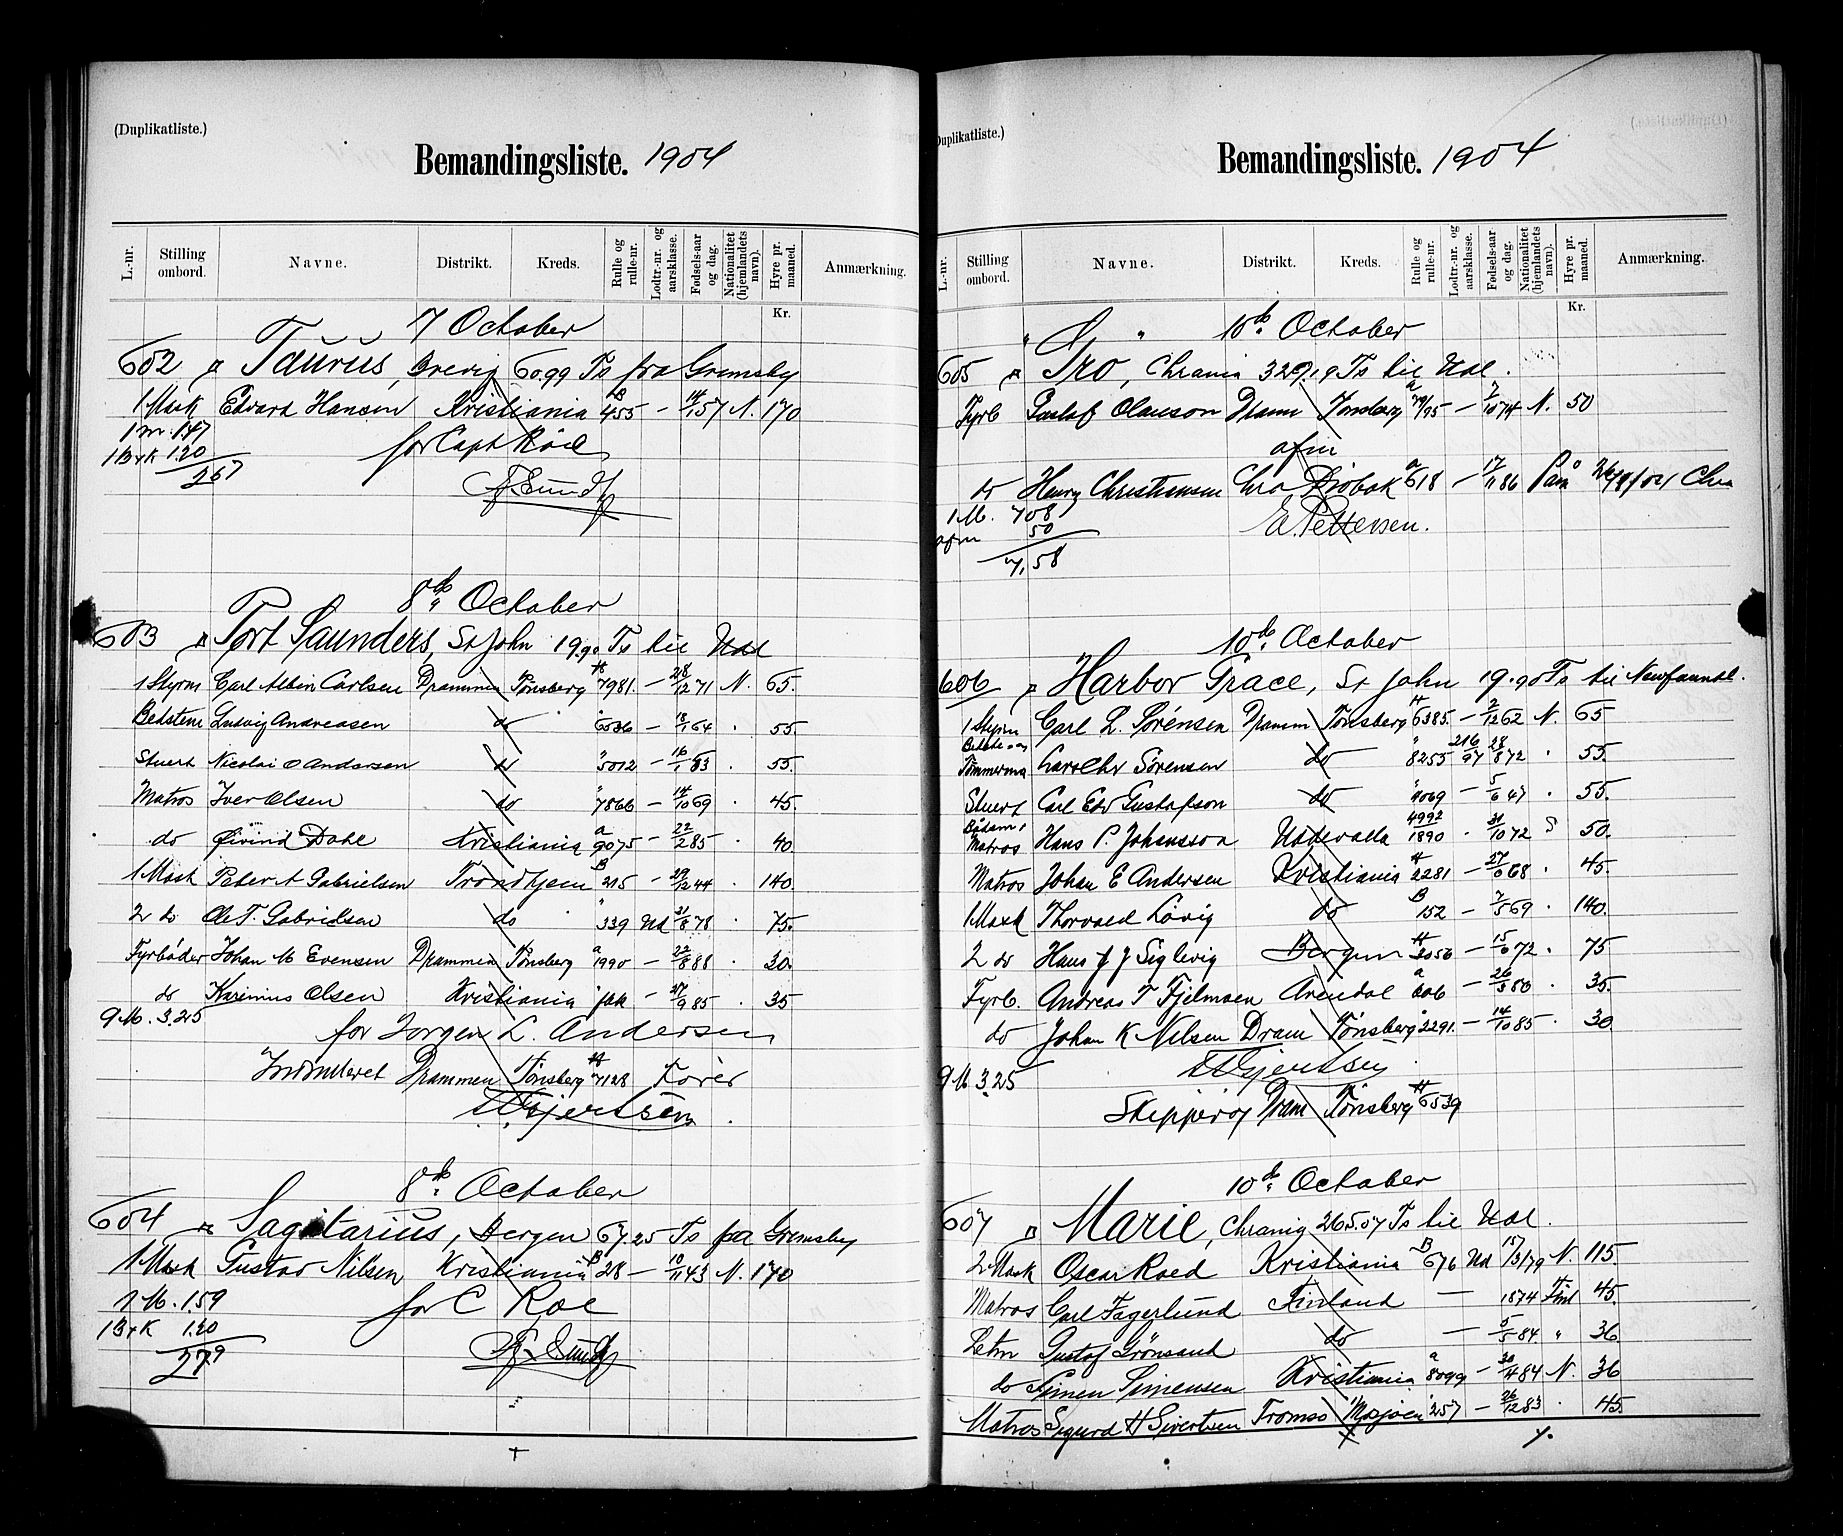 (Duplikatliste.)
Bemandingsliste. 1904
L.-nr.
Stilling ombord.
Navne.
Distrikt.
Kreds.
Rulle og rulle-nr.
Lodtr.-nr. og aarsklasse.
Fødsels-aar og dag.
Nationalitet (hjemlandets navn).
Hyre pr. maaned.
Anmærkning.
Kr.
7 October
602 Taurus, Brevig 60.99 Ts fra Grimsby
1 Mask Edvard Hansen Kristiania B 455 — 14/1 57 N. 170
1 m. 147
for Capt Röd
1 B+K 120
267
8de October
603 Port Saunders, St John 19.90 Ts til Udl
1 Styrm Carl Albin Carlsen Drammen Tönsberg H 7981. — 28/12 71 N. 65.
Bedstem Ludvig Andreasen do " 6536 — 13/1 64 . 55.
Stuert Nicolai O Andersen do " 5012 — 16/1 53 . 55.
Matros Iver Olsen do " 7866 — 14/10 69 . 45.
do Øivind Dahl Kristiania a 9075 — 22/2 85 . 40
1 Mask Peder A Gabrielsen Trondhjem B 215 — 29/12 44 . 140
2 do Ole T. Gabrielsen do " 339 Ud 31/8 78 . 75.
Fyrbøder Johan M Evensen Drammen Tönsberg a 1990 — 22/8 88 . 30.
do Karinius Olsen Kristiania " — 27/9 85 . 35
9 M. 3.25
for Jorgen L. Andersen
Indrulleret Drammen Tönsberg H 7128 Förer
8de October
604 Sagitarius, Bergen 67.25 Ts fra Grimsby
1 Mask Gustav Nilsen Kristiania B 28 — 10/11 43 N. 170
1 M. 159
for C Röe
1 B+K 1.20
279
(Duplikatliste.)
Bemandingsliste. 1904
L.-nr.
Stilling ombord.
Navne.
Distrikt.
Kreds.
Rulle og rulle-nr.
Lodtr.-nr. og aarsklasse.
Fødsels-aar og dag.
Nationalitet (hjemlandets navn).
Hyre pr. maaned.
Anmærkning.
Kr.
" " 10de October
605 Iro, Chrania 329.19 Ts til Udl.
Fyrb Gustaf Olausson Dram Tönsberg a 79/95 — 7/10 74 N. 50
afm
do Henry Christiansen Chra Dröbak a 618 — 17/11 86 Paa Chra
1 M. 708
E. Pettersen.
afm 50
7.58
10de October
606 Harbor Grace, St John 19.90 Ts til Newfaundl.
1 Styrm Carl L. Sörensen Dramm Tönsberg H 6385. — 2/12 62 N. 65
Tömmerma Lars Chr Sörensen do " 8255 216/97 28/8 72 . 55.
Stuert Carl Edv Gustafson do " 4069 — 5/6 47 . 55.
Bådsm & Matros Hans P. Johansson Uddevalla 4992/1890 . 31/10 72 S 50.
Matros Johan E Andersen Kristiania H 2281 — 27/10 68 . 45.
1 Mask Thorvald Lövig do B 152 — 7/5 69 . 140.
2 do Hans J J Siglevig Bergen H 2056 — 15/10 72 . 75
Fyrb. Andreas T Fjelmoen Arendal a 606 — 26/3 80 . 35.
do Johan K Nilsen Dram Tönsberg " 2291. — 14/10 85 . 30
9 M 3.25
Skipper og Dram Tönsberg H 6539
10de October
607 Marie, Chrania 265.07 Ts til Udl.
2 Mask Oscar Roed Kristiania B 676 Ud 15/3 79 N. 115.
Matros Carl Fagerlund Finland — 1874 Finl 45.
Letm Gustaf Grönsand do — 5/5 84 " 36
do Simen Simensen Kristiania a 8099 — 30/4 84 N. 36
Matros Sigurd H Sivertsen Tromsö Mosjöen " 257 — 26/12 83 . 45